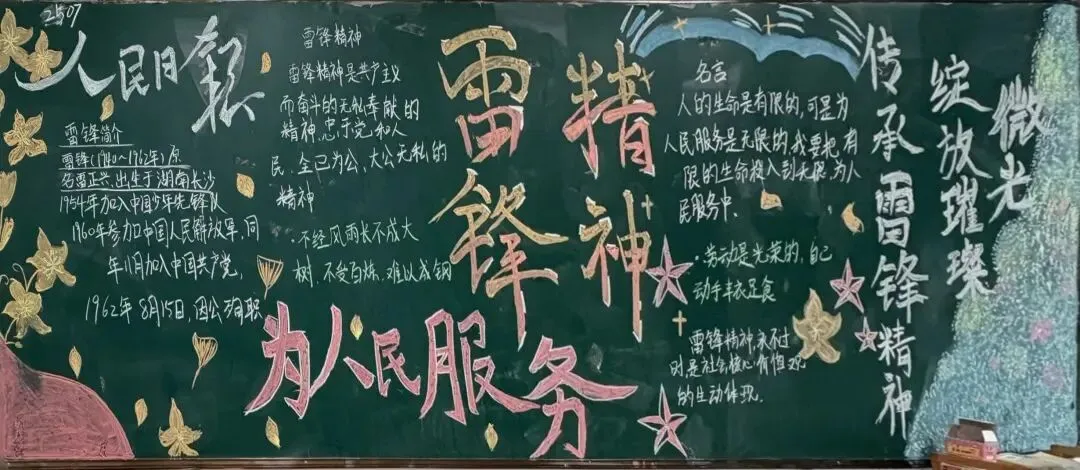 2507
人民日报
雷锋简介
雷锋(1940~1962年)原
名雷正兴,出生于湖南长沙
1954年加入中国少年先锋队
1960年参加中国人民解放军,同
年11月加入中国共产党,
1962年8月15日,因公殉职
雷锋精神
雷锋精神是共产主义
而奋斗的无私奉献的
精神,忠于党和人
民,舍己为公、大公无私的
精神
·不经风雨长不成大
树,不受百炼,难以成钢
雷锋
精神
为人民服务
名言
人的生命是有限的,可是为
人民服务是无限的,我要把有
限的生命投入到无限为人
民服务中.
·劳动是光荣的,自己
动手丰衣足食
雷锋精神,永不过
时是社会核心价值观
的生动体现.
传承雷锋精神
绽放璀璨
微光